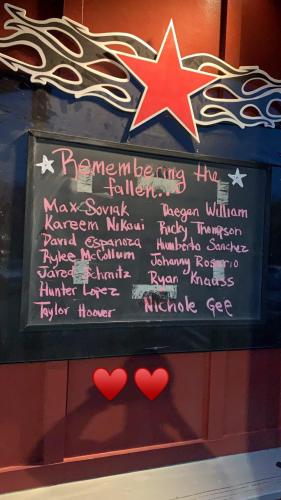 Remembering the
fallen...
Max Soviak
Kareem Nikaui
David Espanoza
Rylee McCollum
Jared Schmitz
Hunter Lopez
Taylor Hoover
Daegan William
Ricky Thompson
Humberto Sanchez
Johanny Rosario
Ryan Knauss
Nichole Gee